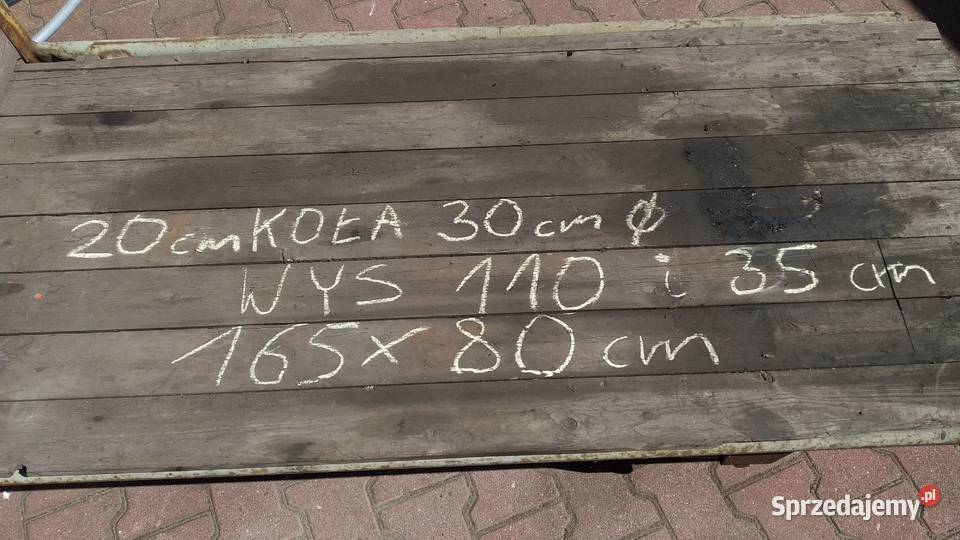 20cm KOŁA 30cm ϕ
WYS 110 i 35 cm
165x80 cm
Sprzedajemy.pl